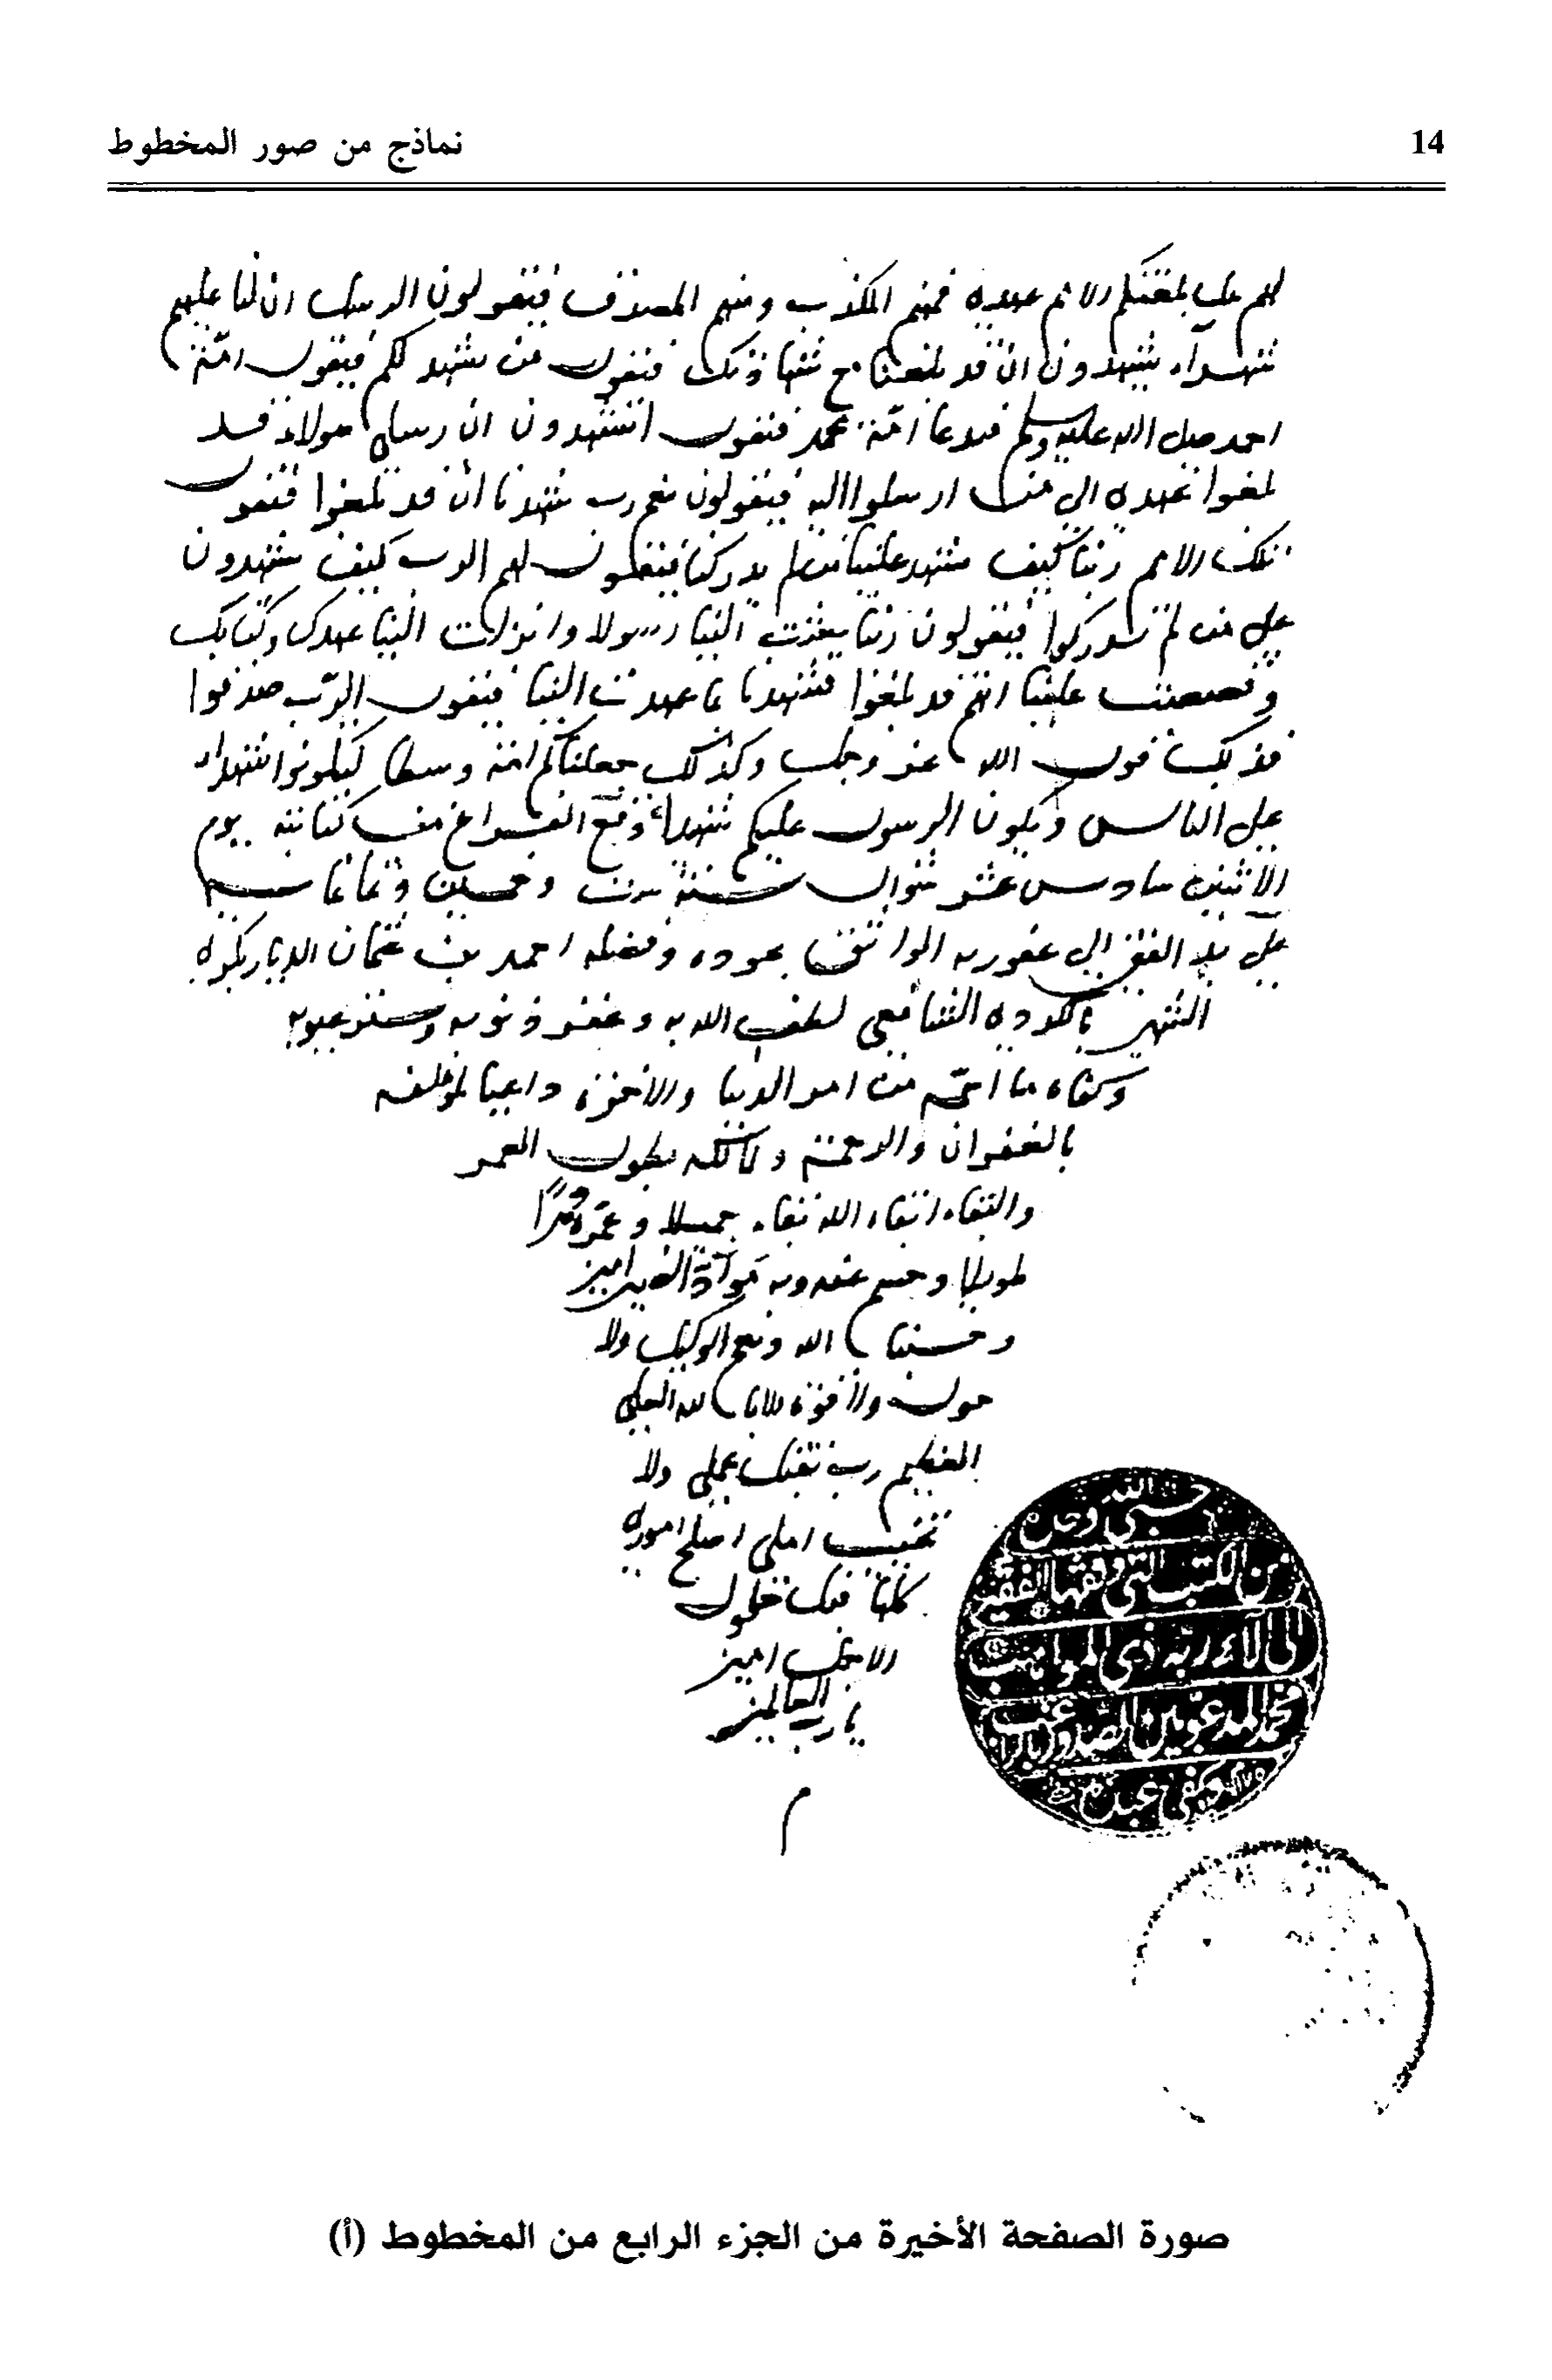 14
نماذج من صور المخطوط
لهم هل بلغتكم الامم عهدي فمنهم المكذب ومنهم المصدق فيقولون الرسل ان لنا عليهم
شهدآء يشهدون ان قد بلغنا مع شهادتك فيقول من يشهد لكم فيقول امّة
احمد صلى الله عليه وسلم فيدعا امّة محمد فيقول اتشهدون ان رسلي هولاء قد
بلغوا عهدي الى من ارسلوا اليه فيقولون نعم رب شهدنا ان قد بلغوا فيقول
تلك الامم ربنا كيف يشهد علينا من لم يدركنا فيقول لهم الرب كيف تشهدون
على من لم تدركوا فيقولون ربنا بعثت الينا رسولا وانزلت الينا عهدك وكتابك
وقصصت علينا انهم قد بلغوا فشهدنا بما عهدت الينا فيقول الرّب صدقوا
فذلك قول الله عز وجل وكذلك جعلناكم امّة وسطا ليكونوا شهداء
على الناس ويكون الرسول عليكم شهداء وقع الفراغ من كتابته يوم
الاثنين سادس عشر شوال سنة ست وخمسين وثمانماية
على يد الفقير الى عفو ربه الواثق بجوده وفضله احمد بن عثمان الدياربكري
الشهير بالكردي الشافعي لطف الله به وغفر ذنوبه وستر عيوبه
وكفاه ما اهمّه من امر الدنيا والاخرة داعيا لمؤلفه
بالغفران والرحمة ولمالكه بطول العمر
والبقاء ابقاء الله بقاء جميلا وعمّره عمرًا
طويلا
وحسبنا الله ونعم الوكيل ولا
حول ولا قوة الا بالله العلي
العظيم رب تقبل عملي ولا
تخيب املي اصلح اموري
كلها قبل حلول
الاجل امين
يا رب العالمين
م
حسبي الله وحده
من الكتب التي وقفها الفقير
الى آلاء ربه ذي المواهب
محمد المدعو بين الصدور براغب
وكفى عبده
صورة الصفحة الأخيرة من الجزء الرابع من المخطوط (أ)